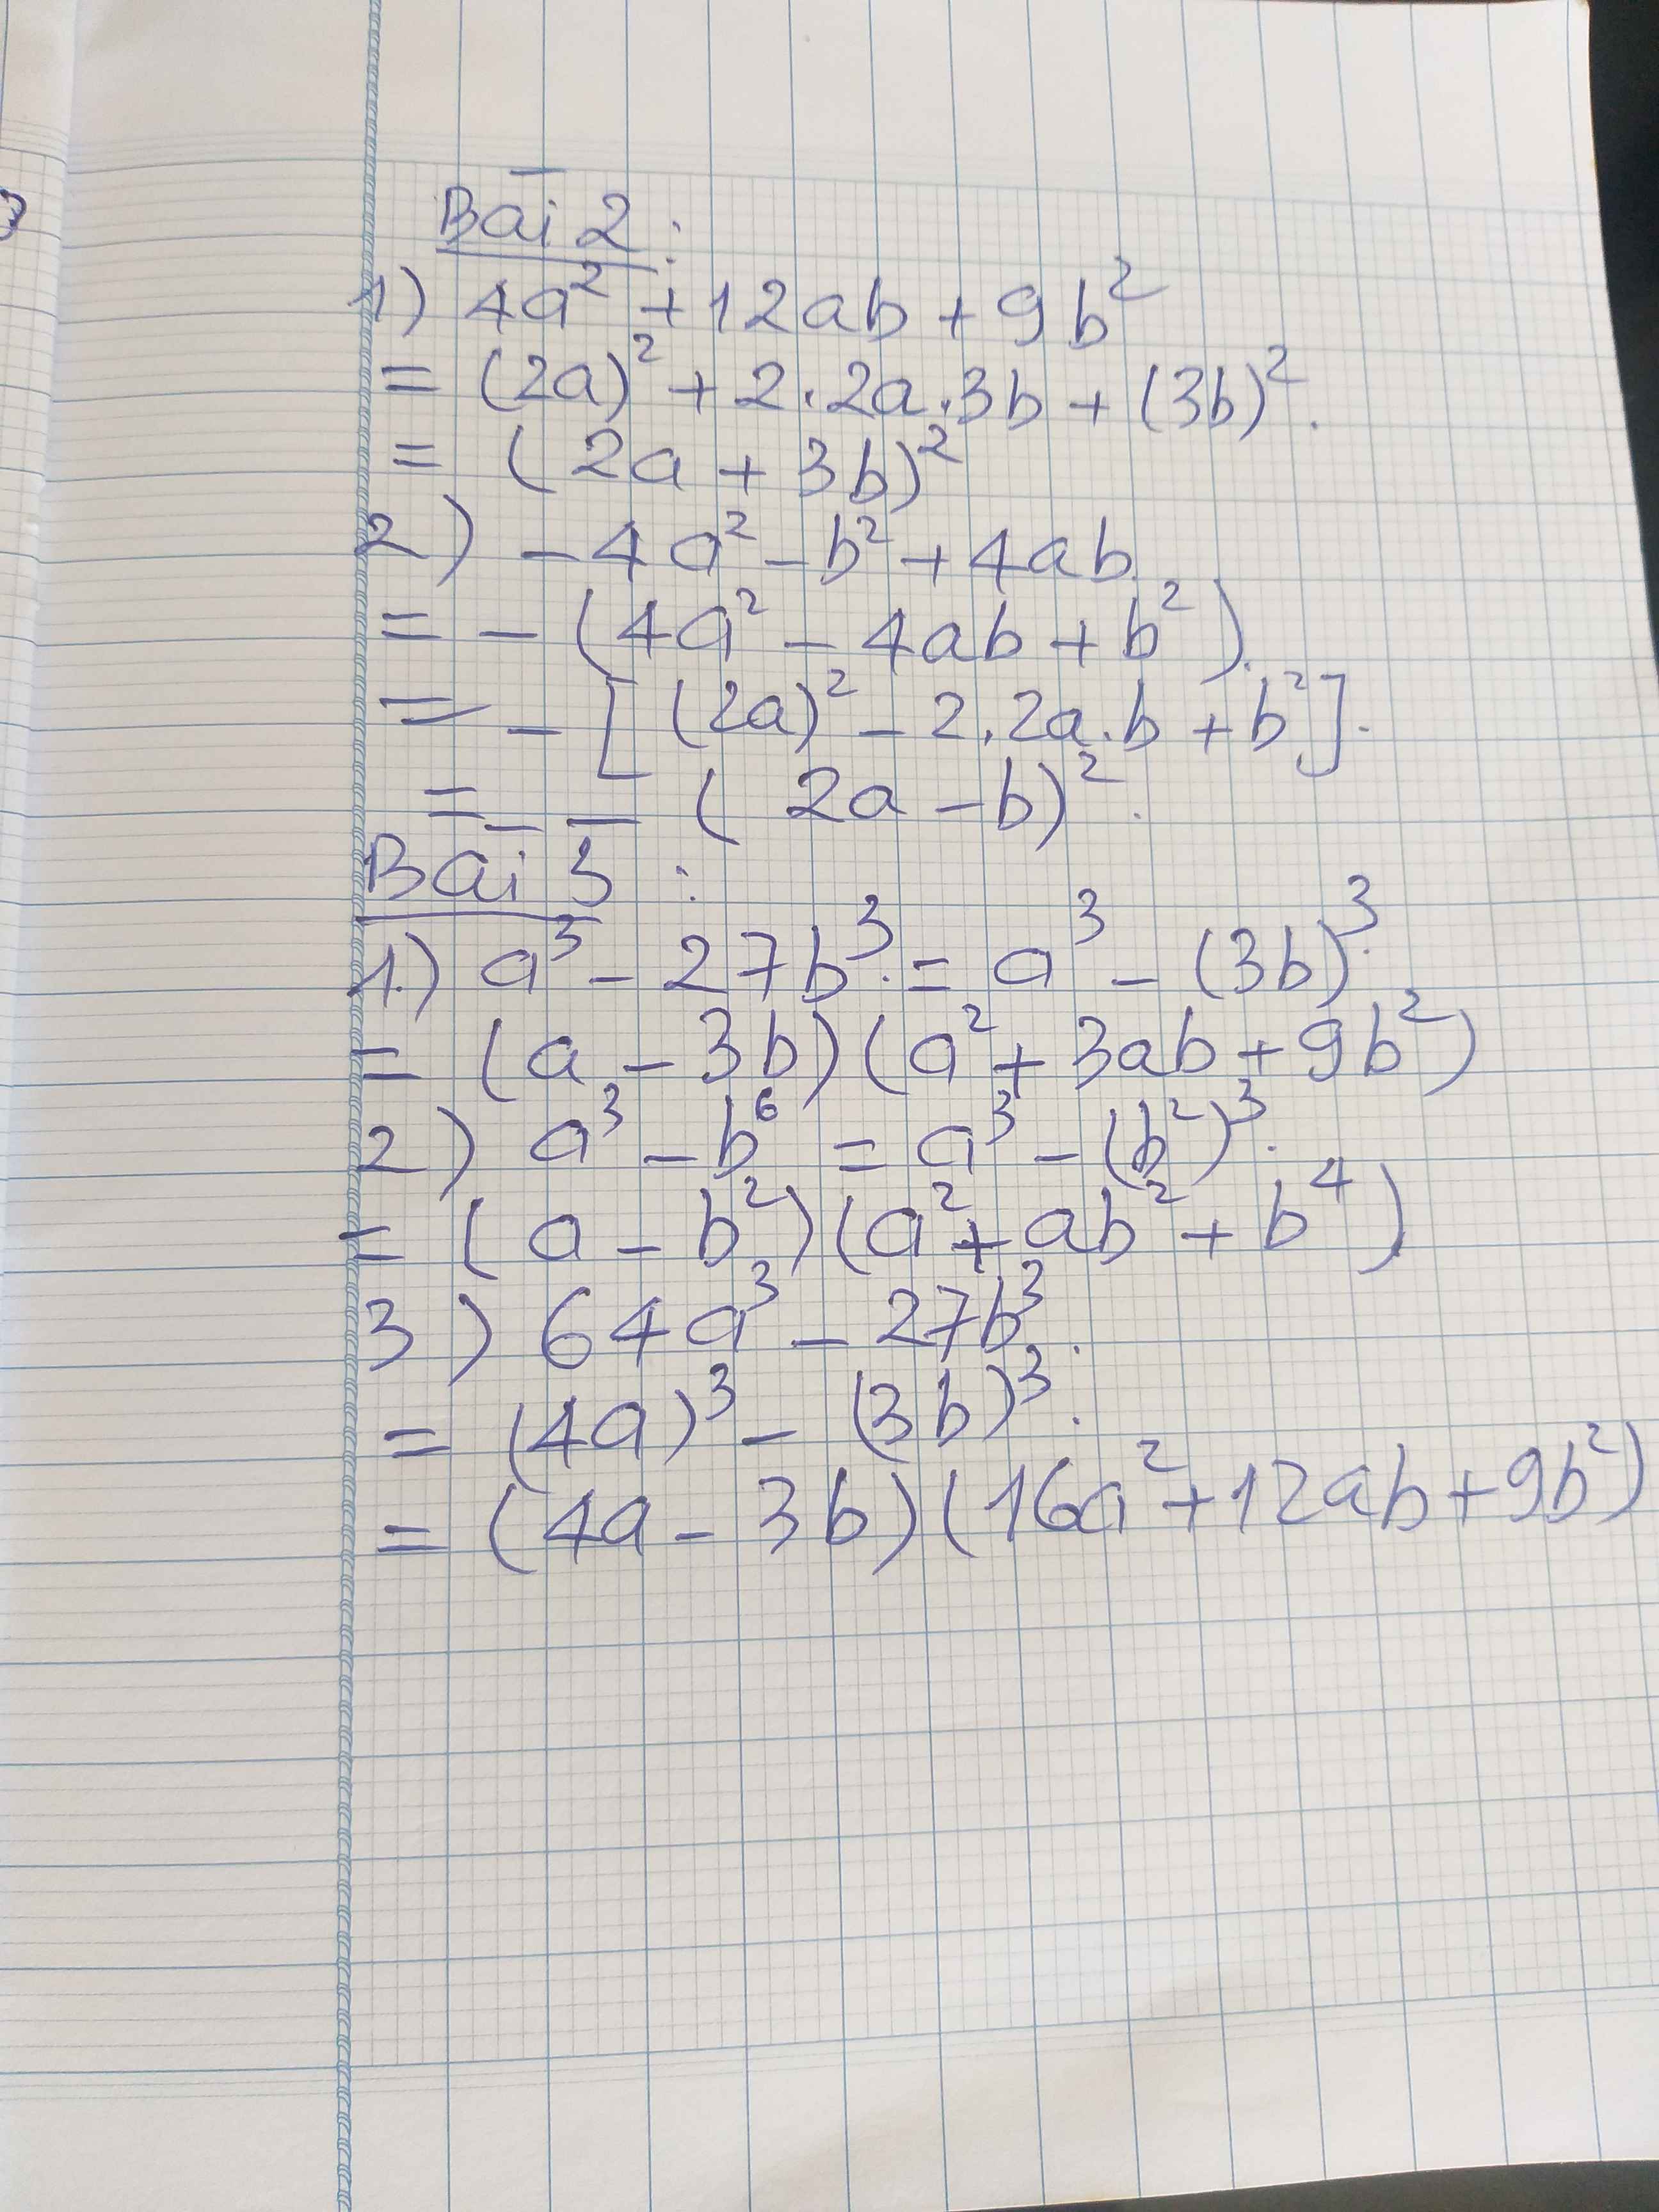 Bài 2:
1) 4a² + 12ab + 9b²
= (2a)² + 2.2a.3b + (3b)².
= (2a + 3b)²
2) -4a² - b² + 4ab.
= - (4a² - 4ab + b²).
= - [(2a)² - 2.2a.b + b²].
= - (2a - b)².
Bài 3:
1.) a³ - 27b³. = a³ - (3b)³.
= (a - 3b)(a² + 3ab + 9b²)
2) a³ - b⁶ = a³ - (b²)³.
= (a - b²)(a² + ab² + b⁴)
3) 64a³ - 27b³.
= (4a)³ - (3b)³.
= (4a - 3b)(16a² + 12ab + 9b²)